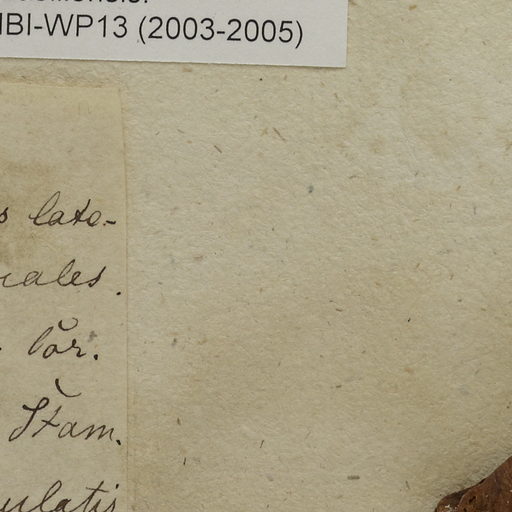 IBI-WP13 (2003-2005)
s lato-
ales.
lŏr.
Stam.
ulatis